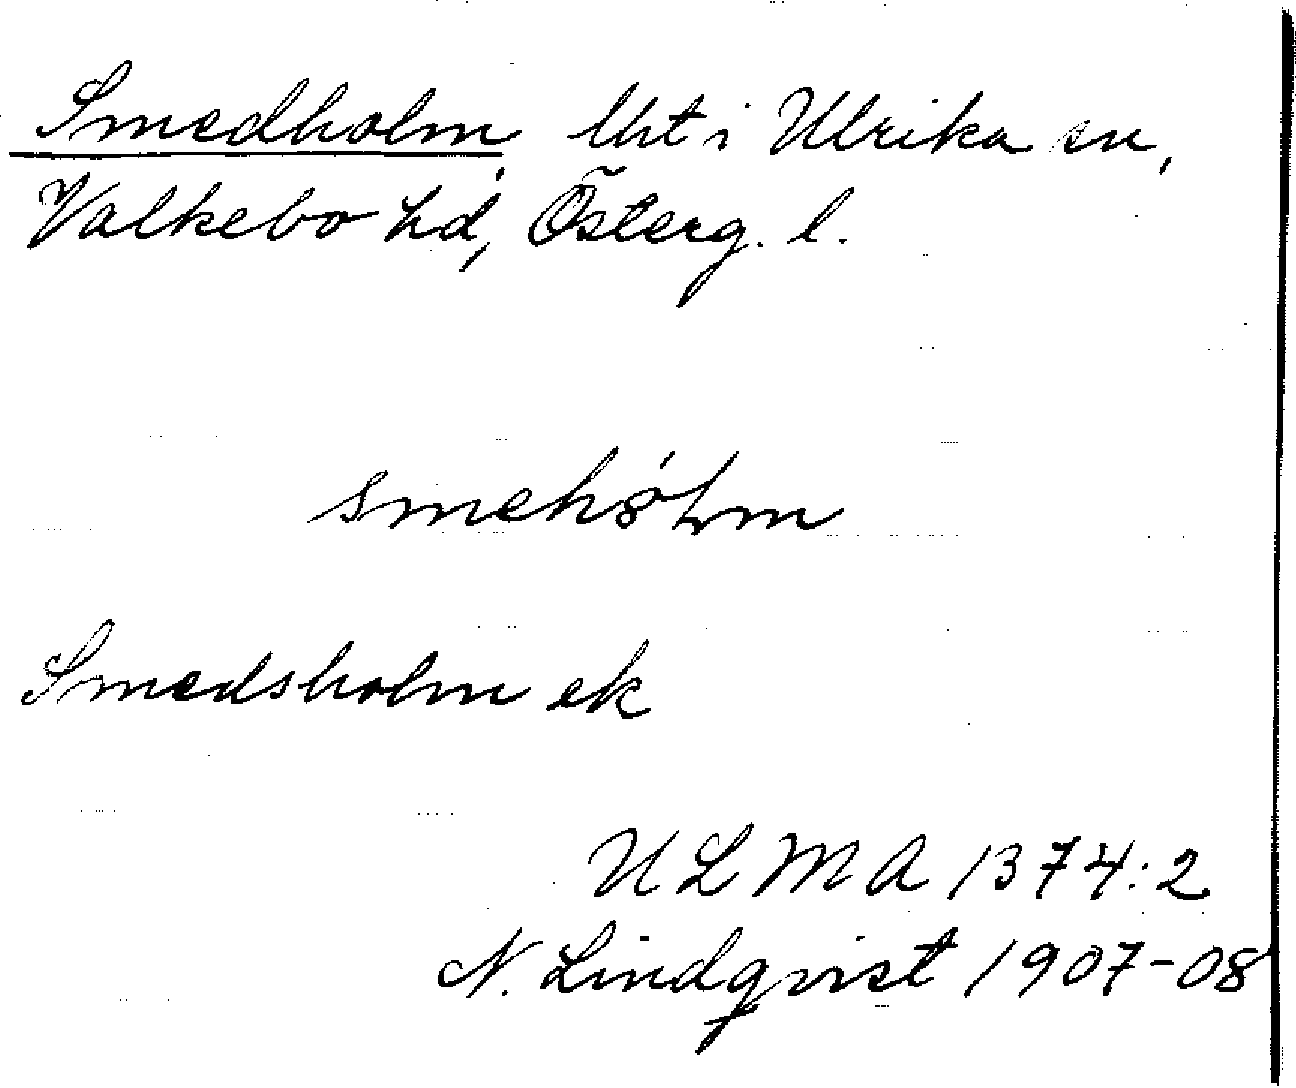 Smedholm, lht i Ulrika sn,
Valkebo hd, Österg. l.
Smedsholm ek
ULMA 1374:2
N. Lindqvist 1907-08